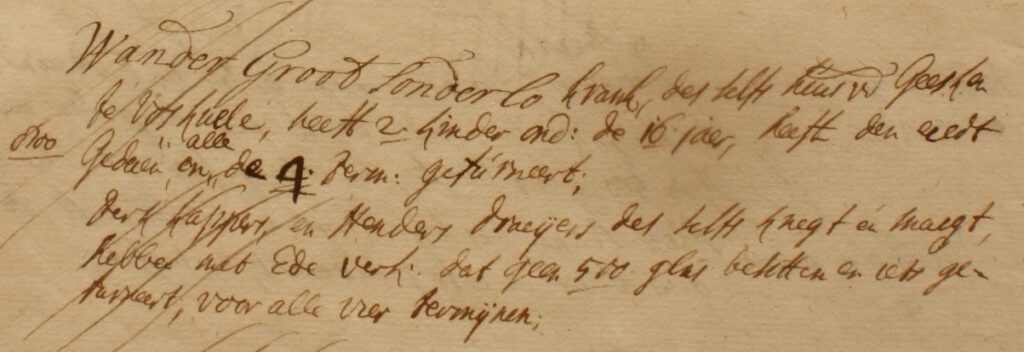 Wander Groot Sonderlo krank, des selfs huusvr Geesken
te Voskuele, heeft 2 kinder ond: de 16 jaer, heeft den eedt
8100
alle
Gedaen en de 4 Term: gefurneert;
Derk Kappers, en Henders Draeijers des selfs knegt en maegt,
hebben met Ede verk: dat geen 500 glns besitten en iets ge-
furneert, voor alle vier Termijnen;